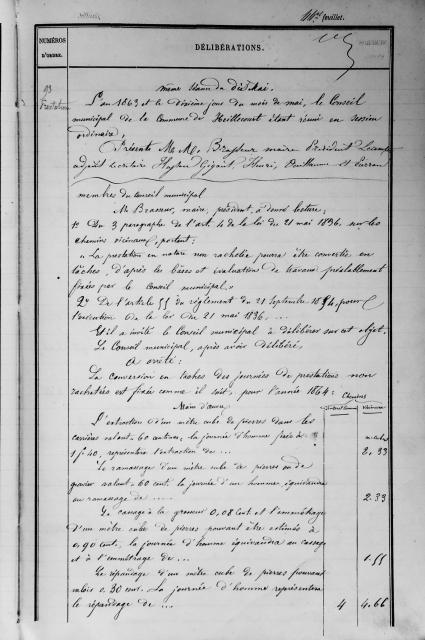 feuillet.
NUMÉROS
D'ORDRE.
DÉLIBÉRATIONS.
93
Prestations
même séance du dix Mai.
L'an 1863 et le dixième jour du mois de mai, le Conseil
municipal de la Commune de étant réuni en session
ordinaire,
Présents M. M. Brasseur maire Président
adjoint Gigant, Henri, Guillaume et
membres du conseil municipal
M. Brasseur, maire, président, a donné lecture:
1º Du 3 paragraphe de l'art. 4 de la loi du 21 mai 1836, sur les
chemins vicinaux, portant:
« La prestation en nature non rachetée pourra être convertie en
tâches, d'après les bases et évaluations de travaux préalablement
fixées par le Conseil municipal. »
2º De l'article 55 du règlement du 21 Septembre 1854, pour
l'exécution de la loi du 21 mai 1836, ...
Et il a invité le Conseil municipal à délibérer sur cet objet.
Le Conseil municipal, après avoir délibéré,
a arrêté:
La conversion en tâches des journées de prestations non
rachetées est fixée comme il suit, pour l'année 1864:
Chemins
Main d'œuvre
L'extraction d'un mètre cube de pierres dans les
carrières valant 60 centimes, la journée d'homme fixée à
1 f. 40, représentera l'extraction de ... 2.33
Le ramassage d'un mètre cube de pierres ou de
gravier valant 60 cent. la journée d'un homme équivaudra
au ramassage de ... 2.33
Le cassage à la grosseur 0,08 cent et l'emmétrage
d'un mètre cube de pierres pouvant être estimés à
0,90 cent., la journée d'homme équivaudra au cassage
et à l'emmétrage de ... 1.55
Le répandage d'un mètre cube de pierres pouvant
valoir 0.30 cent. La journée d'homme représentera
le répandage de ... 4 4.66